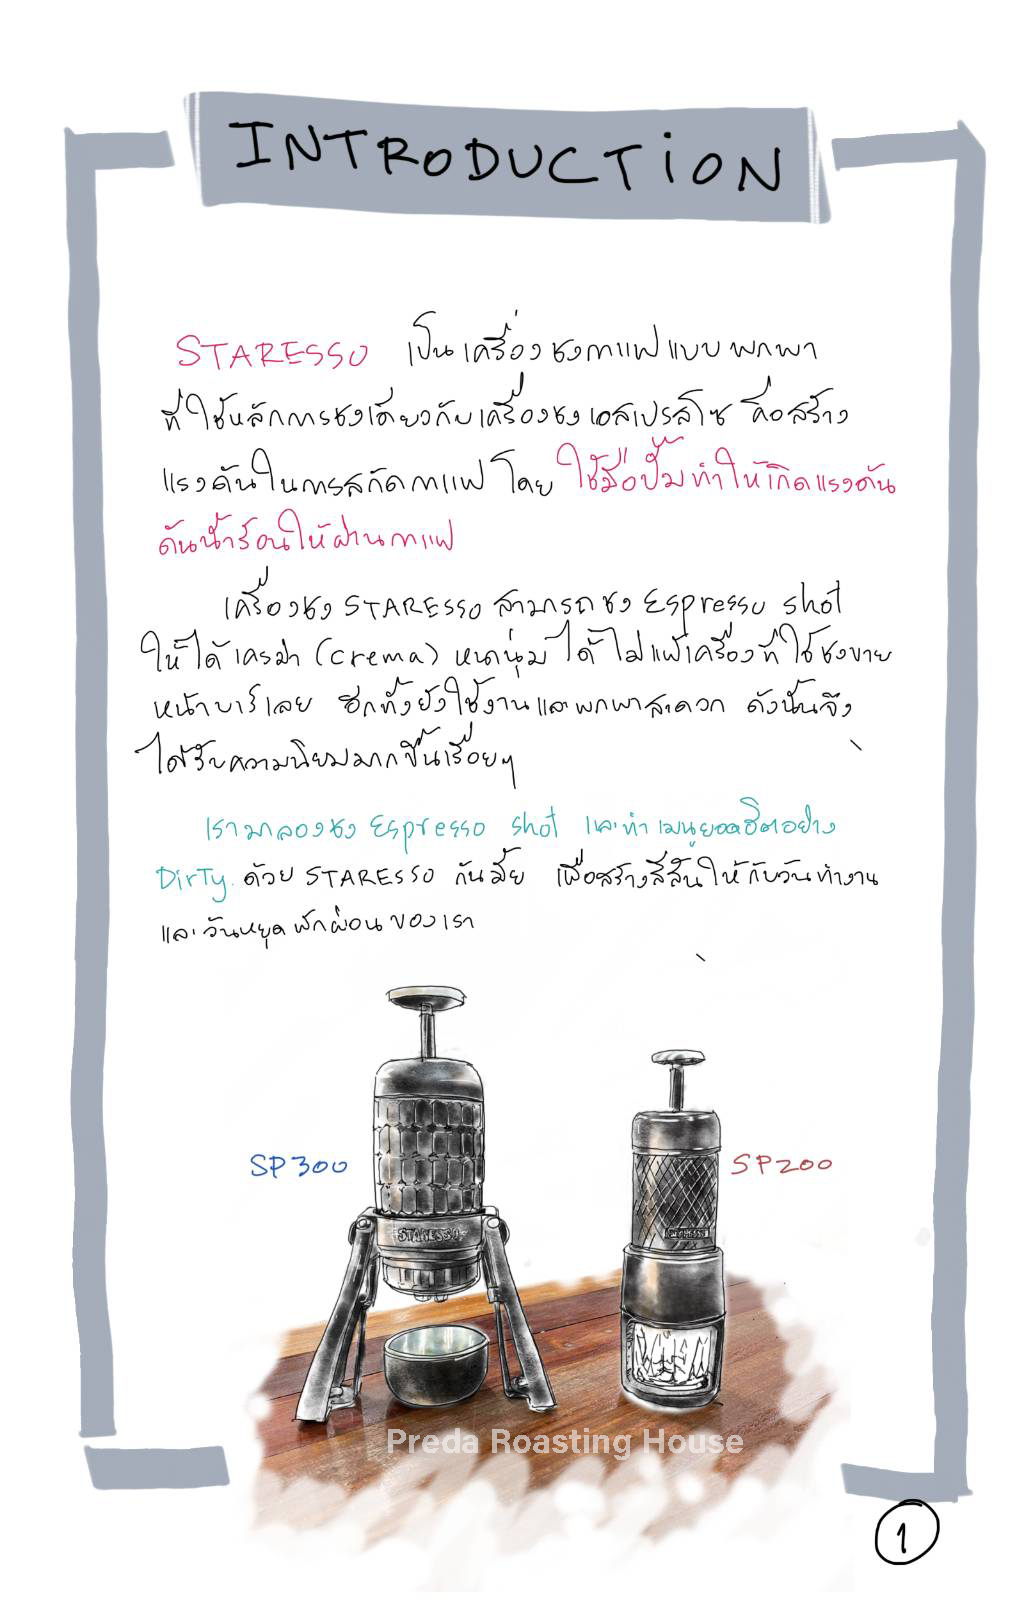 INTRODUCTION
STARESSO เป็นเครื่องชงกาแฟแบบพกพา
ที่ใช้หลักการชงเดียวกับเครื่องชงเอสเปรสโซ คือสร้าง
แรงดันในการสกัดกาแฟ โดย ใช้มือปั๊มทำให้เกิดแรงดัน
ดันน้ำร้อนให้ผ่านกาแฟ
เครื่องชง STARESSO สามารถชง Espresso shot
ให้ได้เครม่า (crema) หนานุ่มได้ไม่แพ้เครื่องที่ใช้ชงขาย
หน้าบาร์เลย อีกทั้งยังใช้งานและพกพาสะดวก ดังนั้นจึง
ได้รับความนิยมมากขึ้นเรื่อยๆ
เรามาลองชง Espresso shot และทำเมนูยอดฮิตอย่าง
Dirty ด้วย STARESSO กันมั้ย เพื่อสร้างสีสันให้กับวันทำงาน
และวันหยุดพักผ่อนของเรา
SP300
SP200
STARESSO
Preda Roasting House
1